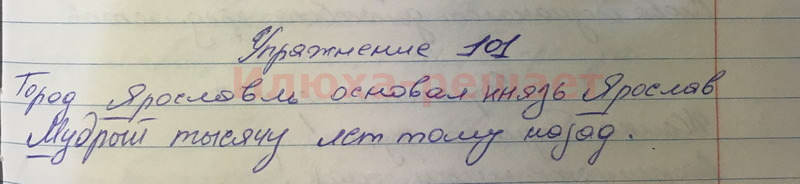 Упражнение 101
Илюха-решает
Город Ярославль основал князь Ярослав
Мудрый тысячу лет тому назад.